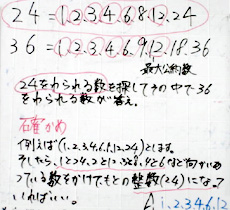 24=1,2,3,4,6,8,12,24
36=1,2,3,4,6,9,12,18,36
最大公約数
24をわられる数を探してその中で36
をわれる数が答え。
確かめ
例えば(1,2,3,4,6,8,12,24)とします。
そしたら、1と24,2と12,3と8,4と6など向かいあ
っている数をかけてもとの整数(24)になって
いればいい。
A 1,2,3,4,6,12